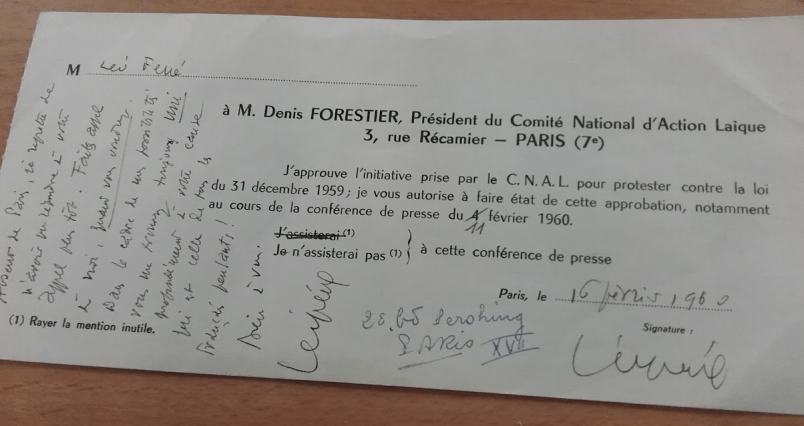 M
à M. Denis FORESTIER, Président du Comité National d'Action Laïque
3, rue Récamier — PARIS (7e)
J'approuve l'initiative prise par le C. N. A. L. pour protester contre la loi
du 31 décembre 1959 ; je vous autorise à faire état de cette approbation, notamment
au cours de la conférence de presse du 4 février 1960.
11
J'assisterai (1)
Je n'assisterai pas (1)
à cette conférence de presse
Paris, le 16 février 1960
(1) Rayer la mention inutile.
Signature :
28. Bd Pershing
PARIS XVII
de Paris, je regrette de
n'avoir pu répondre à votre
appel plus tôt. Faites appel
à moi, quand vous voudrez.
Dans le cadre de mes possibilités
vous me trouverez toujours uni
profondément à votre cause
qui est celle de tous les
Français
Bien à vous.